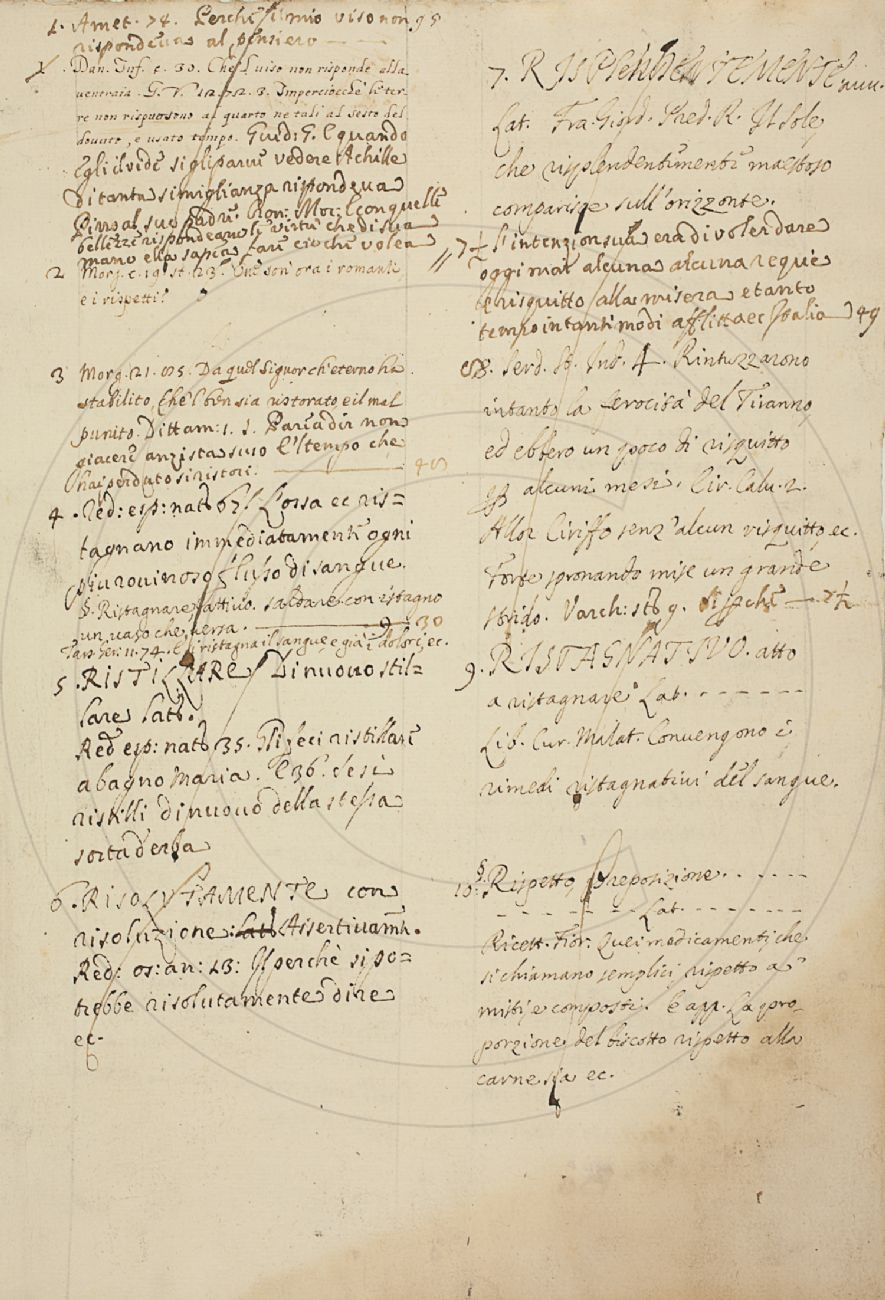 1. Amet. 74. Perche il mio viso non 95
rispondeva al pensiero
Dan. Inf. c. 30. Che'l viso non risponde alla
ventraia. G. V. 12. 72. 3. Imperciocchè le ter
re non risposono al quarto ne tali al sesto del
dovuto, e usato tempo. Guid: G. E quando
Egli il vide si gli parve vedere Achille
Di tanta simiglianza rispondeva
Pirro al suo padre. Rom: Mor: E con quelle
bellezze rispondeano le virtu che di sua
mano ella sapea fare ciò che volea
2 Morg. c. 19. st. 23. son' ora i romanti,
e i rispetti?
3 Morg. 21. 105. Da quel Signor ch'eterno ha
stabilito, Che'l ben sia ristorato e il mal
punito. Dittam: 1. 1. Paria dir non
giacere anzi sta suso E'l tempo che
hai perduto si ristori. 40
4. Red: esp: nat: 67 L'ossa ec ris=
tagnano immediatamente ogni
piu rovinoso flusso di sangue.
§. Ristagnare, attivo. Saldare con istagno
un vaso che versa. 9 30
ristagna il sangue, e già i dolori, ec.
5. RISTILLARE Di nuovo stil=
lare Lat.
Red esp: nat 35. Gli feci ristillare
a bagno Maria. E 36. le si
ristilli di nuovo della stessa
sorta d'erba
6. RISOLUTAMENTE con
risoluzione: Lat: Assertivam.te.
Red: os: an: 13: Il perchè si po=
trebbe risolutamente dire
ec.
7. RISPLENDENTEMENTE
Lat. Fra. Giord. Pred. R. Il sole,
che risplendentemente maestoso
comparisce sull'orizzonte.
// 7 ½ l'intenzion sua era di voler dare
oggi mai alcuna alcuna requie
e risquitto alla misera e tanto
tempo in tanti modi afflitta ec Italia 49
8. Serd. St. Ind. 4. Rintuzzarono
intanto la ferocità del Tiranno,
ed ebbero un poco di risquitto
alcuni mesi. Cir. Calv. 2.
Allor Ciriffo senz'alcun risquitto, ec.
Forte spronando mise un grande
strido. Varch: st. 9. Si 7 ½
9. RISTAGNATIVO. atto
a ristagnare Lat. - - - - - -
Lib. Cur. Malat. Convengono i
rimedi ristagnativi del sangue.
10. § Rispetto, Preposizione. - - - - - -
- - - - - - - Lat. - - - - - - - -
Ricett. Fior: Quei medicamenti, che
si chiamano semplici, rispetto a
misti, e composti. E app. La pro-
porzione del biscotto rispetto alla
carne sia ec.